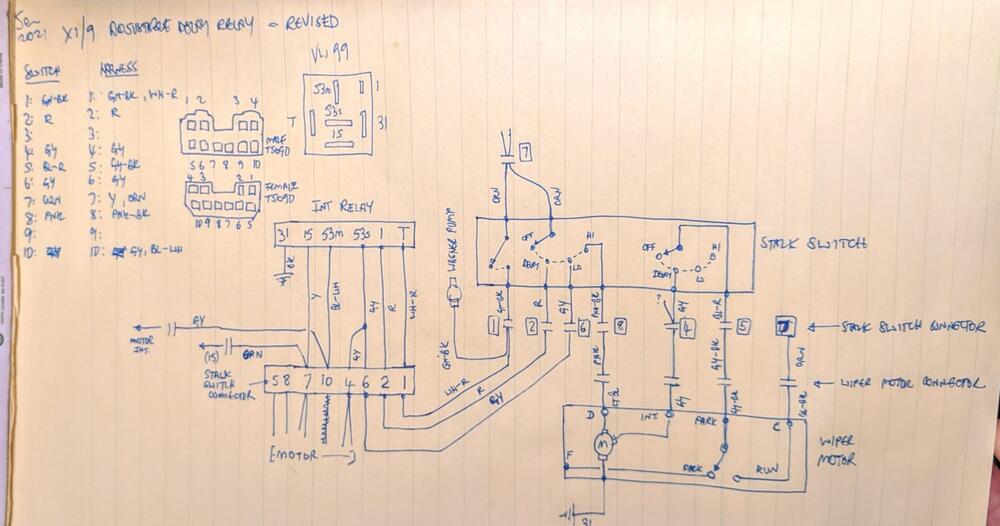 Jan
2021
X1/9 ADJUSTABLE DELAY RELAY - REVISED
SWITCH HARNESS
1: GN-BK 1: GN-BK, WH-R
2: R 2: R
3: 3:
4: GY 4: GY
5: BL-R 5: GY-BK
6: GY 6: GY
7: ORN 7: Y, ORN
8: PNK 8: PNK-BK
9: 9:
10: 10: GY, BL-WH
1 2 3 4
MALE
5 6 7 8 9 10
4 3 2 1
FEMALE
10 9 8 7 6 5
53m 1
T 53s 31
15
INT RELAY
31 15 53m 53s 1 T
BK Y BL-WH GY R WH-R
GY
MOTOR
INT.
(15) ORN
GY
STALK
SWITCH
CONNECTOR
5 8 7 10 4 6 2 1
[MOTOR]
WASHER PUMP
GN-BK
WH-R
R
GY
7
ORN ORN
OFF HI
DELAY LO
OFF HI
DELAY
STALK SWITCH
G-BK R GY PNK-BK ? GY BL-R
1 2 6 8 4 5
STALK SWITCH CONNECTOR
PNK GY-BK ORN
WIPER MOTOR CONNECTOR
GY GY-BK BL-BK
D INT PARK C
M
F PARK RUN
WIPER
MOTOR
31